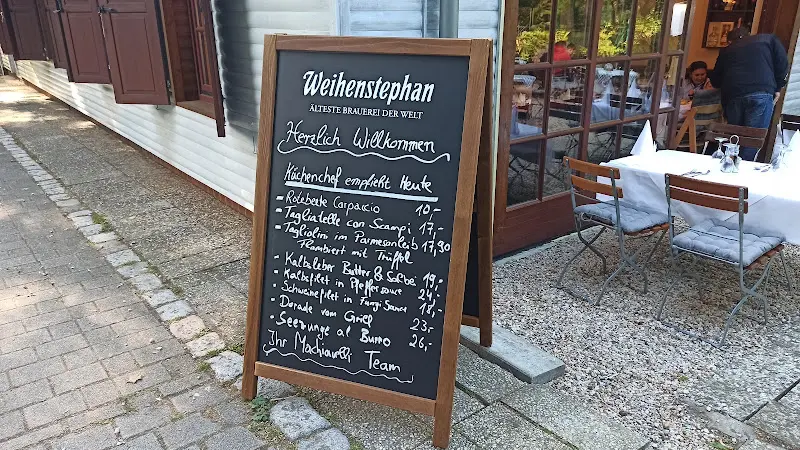 Weihenstephan
ÄLTESTE BRAUEREI DER WELT
Herzlich Willkommen
Küchenchef empfiehlt Heute
- Rotebeete Carpaccio 10,-
- Tagliatelle con Scampi 17,-
- Tagliolini im Parmesanleib 17,90
Flambiert mit Trüffel
- Kalbsleber Butter & Salbei 19,-
- Kalbsfilet in Pfeffersauce 24,-
- Schweinefilet in Fungi Sauce 18,-
- Dorade vom Grill 23,-
- Seezunge al Burro 26,-
Ihr Machiavelli Team